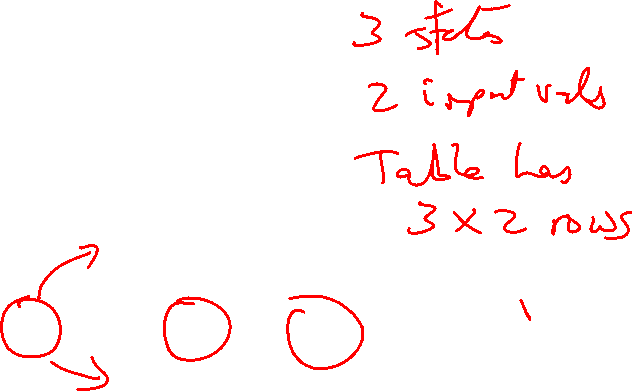 3 states
2 input vals
Table has
3 × 2 rows